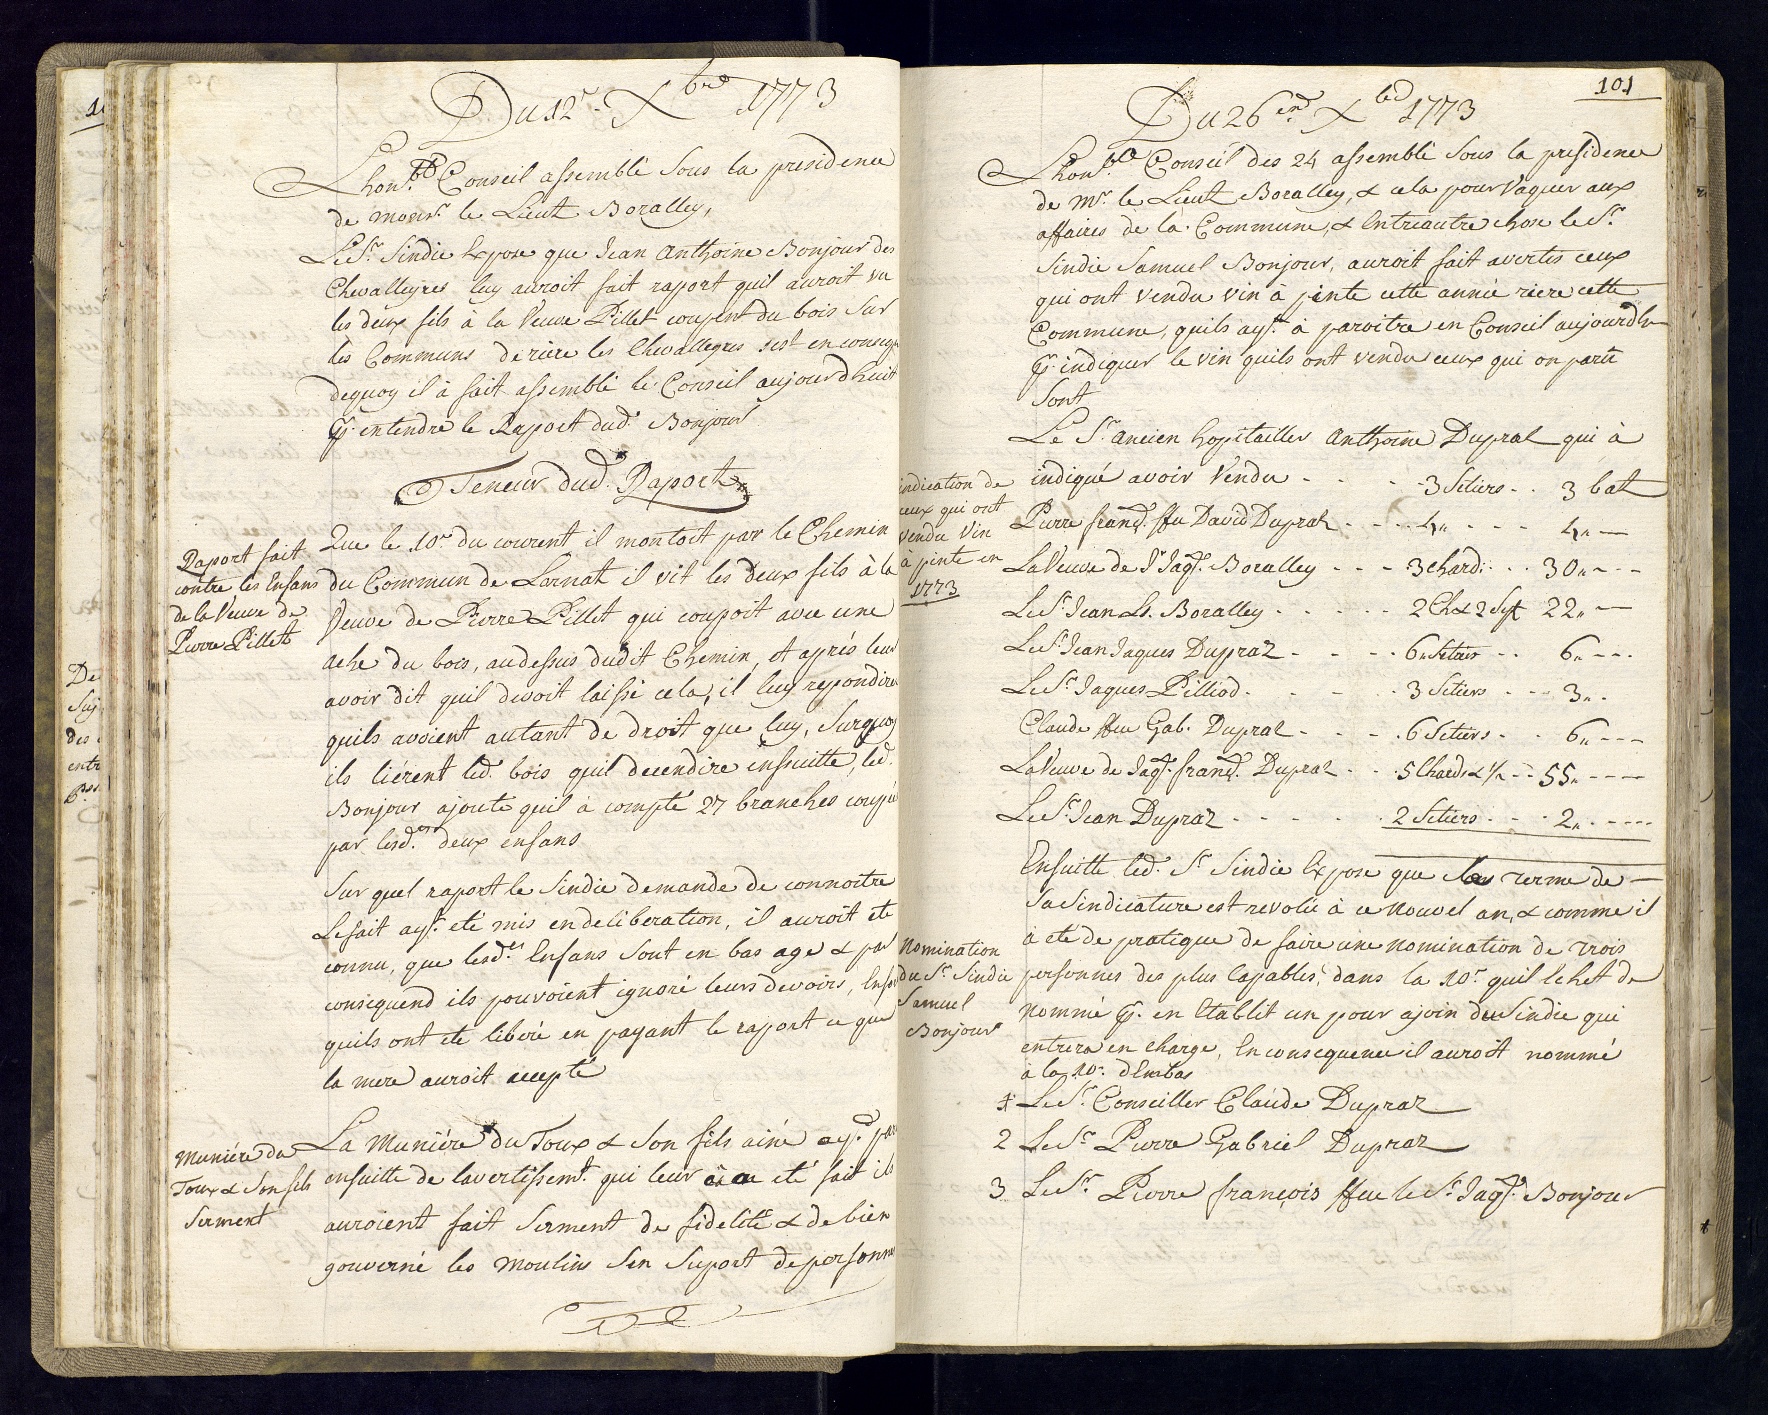 Du 12.e Xbre 1773
Lhon.ble Conseil assemblé Sous la presidence
de monsr. le Lieut Boralley,
Le Sr. Sindic Expose que Jean Anthoine Bonjour des
Chevalleyres luy auroit fait raport quil auroit vu
les deux fils à la Veuve Pillet coupent du bois Sur
les Communs deriere les Chevalleyres sest en conseq
dequoy il à fait assemblé le Conseil aujourdhuit
pr. entendre le Raport dud. Bonjour
Teneur dud. Raport
Raport fait
contre les Enfans
de la Veuve de
Pierre Pillet
Que le 10e du courent il montoit par le Chemin
du Commun de Lornat il vit les deux fils à la
Veuve de Pierre Pillet qui coupoit avec une
ache du bois, audessus dudit Chemin, et aprés leur
avoir dit quil devoit laissé cela, il luy repondire
quils avoient autant de droit que luy, Surquoy
ils liérent led. bois quil decendire ensuitte, led.
Bonjour ajoute quil à compté 27 branches coupé
par lesd.es deux enfans
Sur quel raport le Sindic demande de connoitre
Lefait ayt. eté mis endeliberation, il auroit ete
connu, que lesd.es Enfans Sont en bas age & par
consequend ils pouvoient ignoré leurs devoirs,
quils ont ete liberé en payant le raport ce que
la mere auroit accepté
Muniére du
Toux & Son fils
Serment
La Muniére du Toux & Son fils ainé ayt. par
ensuitte de lavertissemt. qui leur à eté fait ils
auroient fait Serment de fidelité & de bien
gouverné les Moulins Sen Suport de personne
101
Du 26en. Xbre 1773
Lhon.ble Conseil des 24 assemblé Sous la presidence
de Mr. le Lieut Boralley, & cela pour Vaquer aux
affaires de la Commune, & Entreautre chose le Sr.
Sindic Samuel Bonjour, auroit fait avertir ceux
qui ont Vendu Vin à pinte cette année riere cette
Commune, quils ayt. à paroitre en Conseil aujourdhu
pr. indiquer le vin quils ont vendu ceux qui on parû
Sont
indication de
ceux qui ont
Vendu Vin
à pinte en
1773
Le Sr. Ancien hopitailler Anthoine Dupraz qui à
indiqué avoir Vendu - - - - - 3 Setiers - - 3 bat
Pierre franç. ffeu David Dupraz - - - - 4„ - - - - 4„ —
La Veuve de Sr. Jaqs. Boralley - - - 3 chard: - - 30„ - - -
Le Sr. Jean Ls. Boralley - - - - - 2 Ch & 2 Set 22„ —
Le Sr. Jean Jaques Dupraz - - - - 6„ Setiers - - 6„ - - -
Le Sr. Jaques Pilliod - - - - - 3 Setiers - - - 3„ -
Claude ffeu Gab. Dupraz - - - - 6 Setiers - - 6„ - - -
La Veuve de Jaqs. franç. Dupraz - - 5 Chards & ½ - - 55„ - - - -
Le Sr. Jean Dupraz - - - - - 2 Setiers - - - 2„ - - - -
Nomination
du Sr. Sindic
Samuel
Bonjour
Ensuitte led. Sr Sindic Expose que terme de
Sa Sindicature est revolû à ce Nouvel an, & comme il
à eté de pratique de faire une Nomination de trois
personnes des plus Capables, dans la 10e. quil lehet de
Nommé pr. en Etablit un pour ajoin du Sindic qui
entrera en charge, En consequence il auroit nommé
à la 10e. dEmbas
1 Le Sr. Conseiller Claude Dupraz
2 Le Sr. Pierre Gabriel Dupraz
3 Le Sr. Pierre françois ffeu le Sr. Jaqs. Bonjour